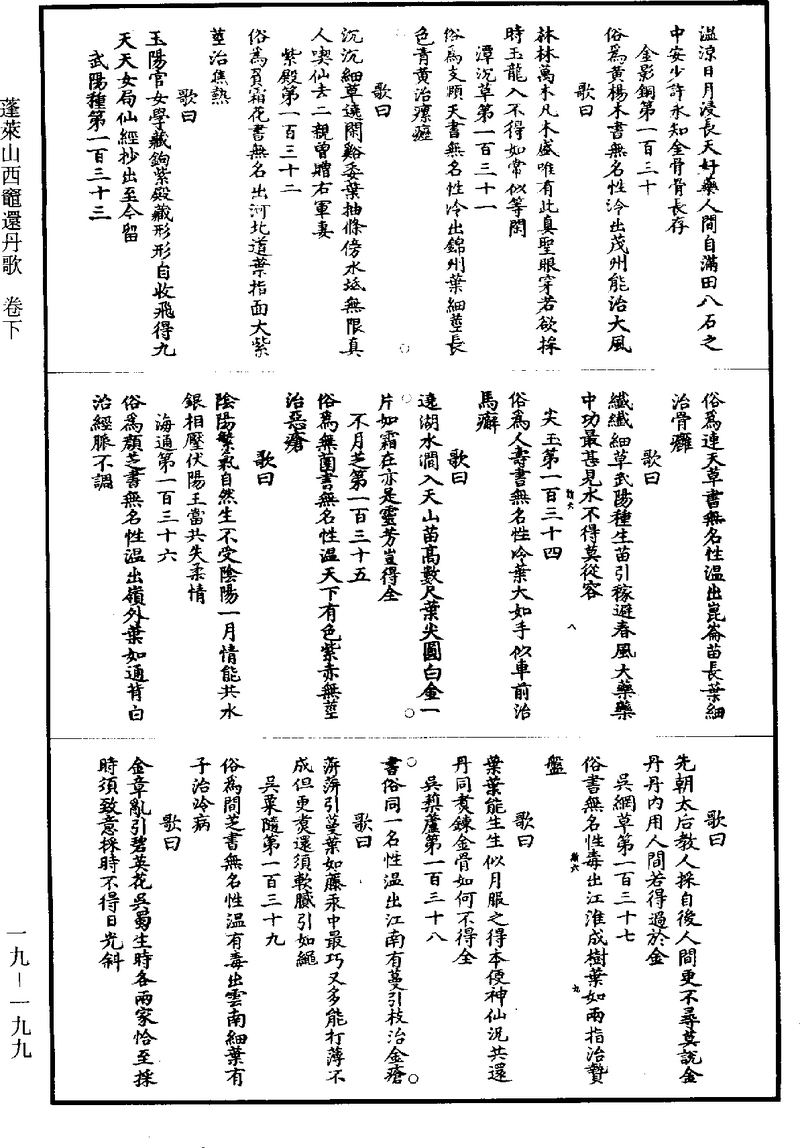 蓬萊山西竈還丹歌　卷下
溫涼日月浸長天好藥人間自滿田八石之
中安少許永知金骨骨長存
金影鋼第一百三十
俗爲黃楊木書無名性冷出茂州能治大風
歌曰
林林萬木凡木盛唯有此真聖眼穿若欲採
時玉龍入不得如常似等閑
潭沉草第一百三十一
俗爲支顋天書無名性冷出錦州葉細莖長
色青黃治瘰癧
歌曰
沉沉細草遶閑谿委葉抽條傍水坻無限真
人喫仙去二親曾贈右軍妻
紫殿第一百三十二
俗爲貫霜花書無名出河北道葉指面大紫
莖治焦熱
歌曰
玉陽官女學藏鉤紫殿藏形形自收飛得九
天天女局仙經抄出至今留
武陽種第一百三十三
俗爲連天草書無名性溫出崑崙苗長葉細
治骨癰
歌曰
纖纖細草武陽種生苗引稼避春風大藥藥
中功最甚見水不得莫從容
尖玉第一百三十四
俗爲人壽書無名性冷葉大如手似車前治
馬癬
歌曰
遶湖水澗入天山苗高數尺葉尖圓白金一
片如霜在亦是靈芳豈得全
不月芝第一百三十五
俗爲無菌書無名性溫天下有色紫赤無莖
治惡瘡
歌曰
陰陽繁氣自然生不受陰陽一月情能共水
銀相壓伏陽王當共失柔情
海通第一百三十六
俗爲顏芝書無名性溫出嶺外葉如通背白
治經脈不調
歌曰
先朝太后教人採自後人間更不尋莫說金
丹丹內用人間若得過於金
吳網草第一百三十七
俗書無名性毒出江淮成樹葉如兩指治贊
盤
歌曰
葉葉能生生似月服之得本便神仙況共還
丹同煑鍊金骨如何不得全
吳蒴蘆第一百三十八
書俗同一名性溫出江南有蔓引枝治金瘡
歌曰
漭漭引蔓葉如藤汞中最巧又多能打薄不
成但更煑還須軟膩引如繩
吳粟隨第一百三十九
俗爲間芝書無名性溫有毒出雲南細葉有
子治冷病
歌曰
金章亂引碧英花吳蜀生時各兩家恰至採
時須致意採時不得日光斜
一九－一九九